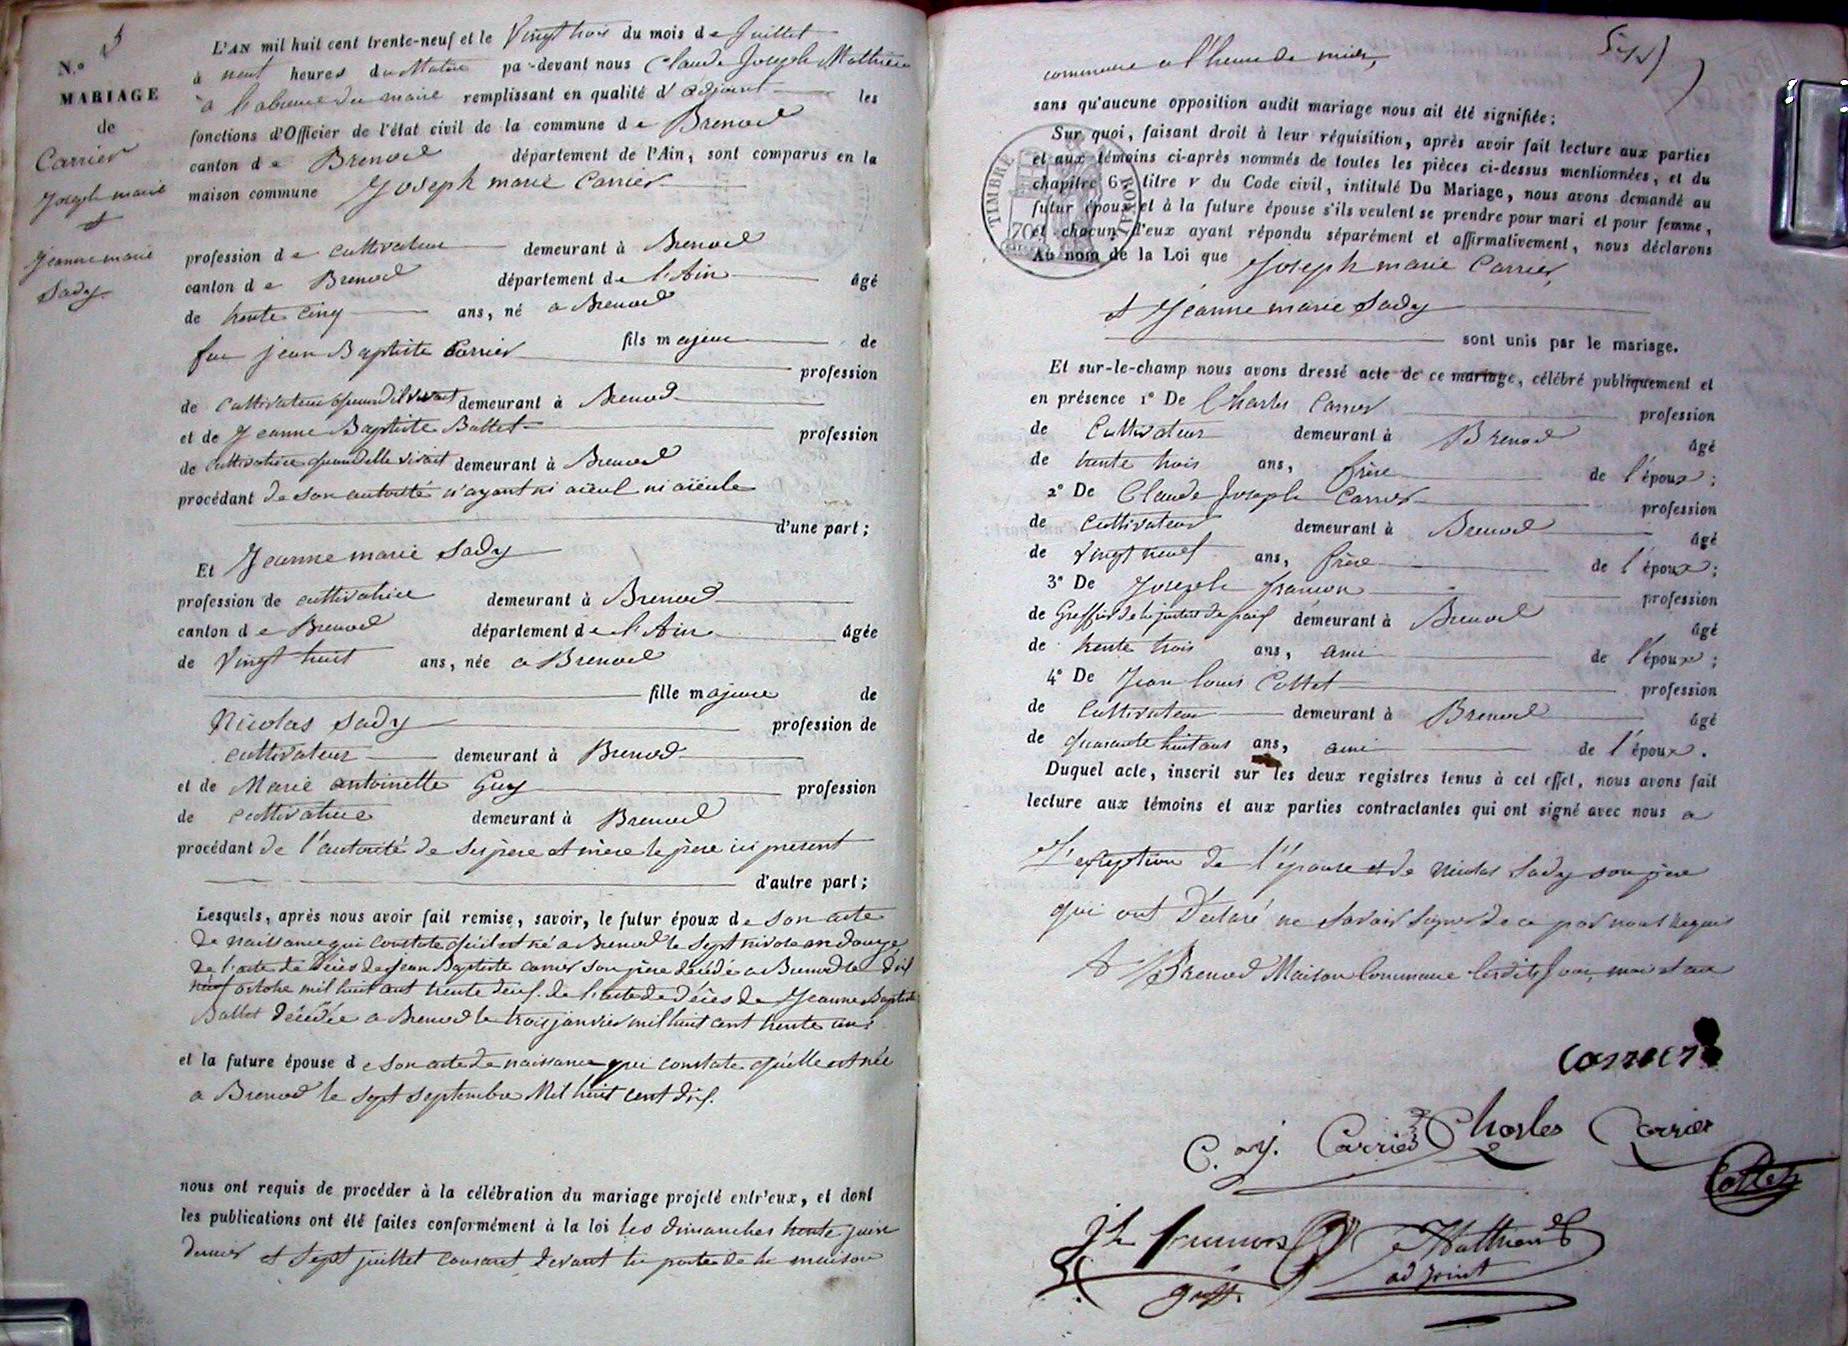 N.º 5
MARIAGE
de
Carrier
Joseph marie
et
Jeanne marie
Sady
L'AN mil huit cent trente-neuf et le Vingt trois du mois de Juillet
à neuf heures du Matin pa-devant nous Claude Joseph Mathieu
à l'absence du maire remplissant en qualité d'adjoint les
fonctions d'Officier de l'état civil de la commune de Brenod
canton de Brenod département de l'Ain, sont comparus en la
maison commune Joseph marie Carrier
profession de cultivateur demeurant à Brenod
canton de Brenod département de l'Ain âgé
de trente cinq ans, né a Brenod
fils majeur de
feu jean Baptiste Carrier profession
de Cultivateur quand il vivait demeurant à Brenod
et de Jeanne Baptiste Ballet profession
de cultivatrice quand elle vivait demeurant à Brenod
procédant de son autorité n'ayant ni aïeul ni aïeule
d'une part;
Et Jeanne marie Sady
profession de cultivatrice demeurant à Brenod
canton de Brenod département de l'Ain âgée
de Vingt huit ans, née a Brenod
fille majeure de
Nicolas Sady profession de
cultivateur demeurant à Brenod
et de Marie antoinette Guy profession
de cultivatrice demeurant à Brenod
procédant de l'autorité de ses père et mère le père ici présent
d'autre part;
Lesquels, après nous avoir fait remise, savoir, le futur époux de son acte
de naissance qui constate qu'il est né a Brenod le sept nivose an douze
de l'acte de décès de jean Baptiste carrier son père décédé a Brenod le dix
neuf octobre mil huit cent trente deux. de l'acte de décès de Jeanne Baptiste
Ballet décédée a Brenod le trois janvier mil huit cent trente un
et la future épouse de son acte de naissance qui constate qu'elle est née
a Brenod le sept septembre Mil huit cent dix.
nous ont requis de procéder à la célébration du mariage projeté entr'eux, et dont
les publications ont été faites conformément à la loi les dimanches trente juin
dernier et sept juillet courant devant la porte de la maison
commune a l'heure de midi,
sans qu'aucune opposition audit mariage nous ait été signifiée;
Sur quoi, faisant droit à leur réquisition, après avoir fait lecture aux parties
et aux témoins ci-après nommés de toutes les pièces ci-dessus mentionnées, et du
chapitre 6, titre v du Code civil, intitulé Du Mariage, nous avons demandé au
futur époux et à la future épouse s'ils veulent se prendre pour mari et pour femme,
et chacun d'eux ayant répondu séparément et affirmativement, nous déclarons
Au nom de la Loi que Joseph marie Carrier,
et Jeanne marie Sady
sont unis par le mariage.
TIMBRE ROYAL
70
Et sur-le-champ nous avons dressé acte de ce mariage, célébré publiquement et
en présence 1º De Charles Carrier profession
de Cultivateur demeurant à Brenod âgé
de trente trois ans, frère de l'époux;
2º De Claude Joseph Carrier profession
de cultivateur demeurant à Brenod âgé
de vingt neuf ans, frère de l'époux;
3º De Joseph françon profession
de Greffier de la justice de paix demeurant à Brenod âgé
de trente trois ans, ami de l'époux;
4º De Jean louis Cottet profession
de Cultivateur demeurant à Brenod âgé
de quarante huit ans ans, ami de l'époux.
Duquel acte, inscrit sur les deux registres tenus à cet effet, nous avons fait
lecture aux témoins et aux parties contractantes qui ont signé avec nous a
L'exception de l'épouse et de Nicolas Sady son père
qui ont Déclaré ne savoir signer de ce par nous requis
A Brenod Maison Commune lesdits Jour, mois et an
Carrier
C. j. Carrier Charles Carrier
Cottet
Jh
greff.
Mathieu
adjoint